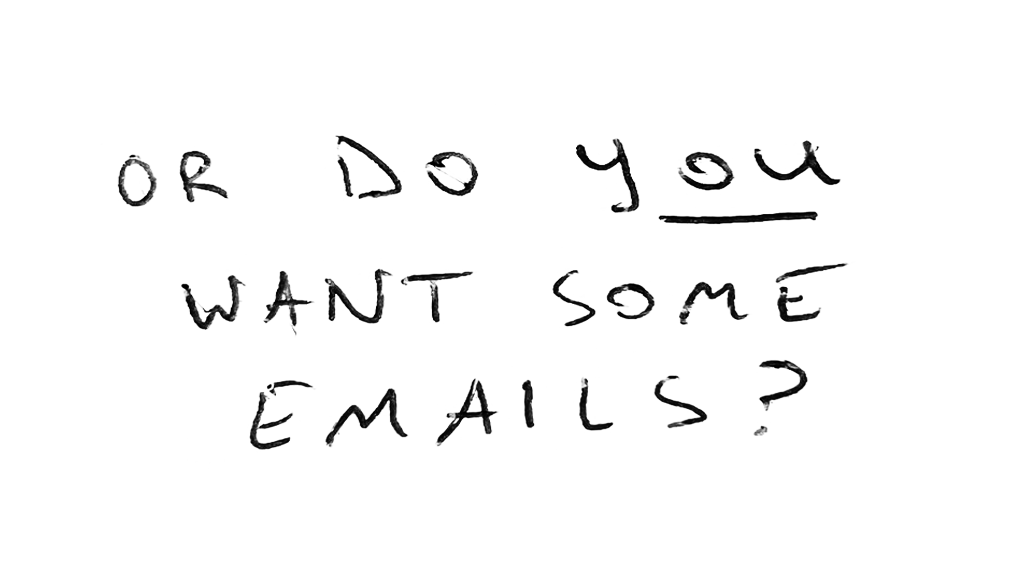 OR DO YOU
WANT SOME
EMAILS?